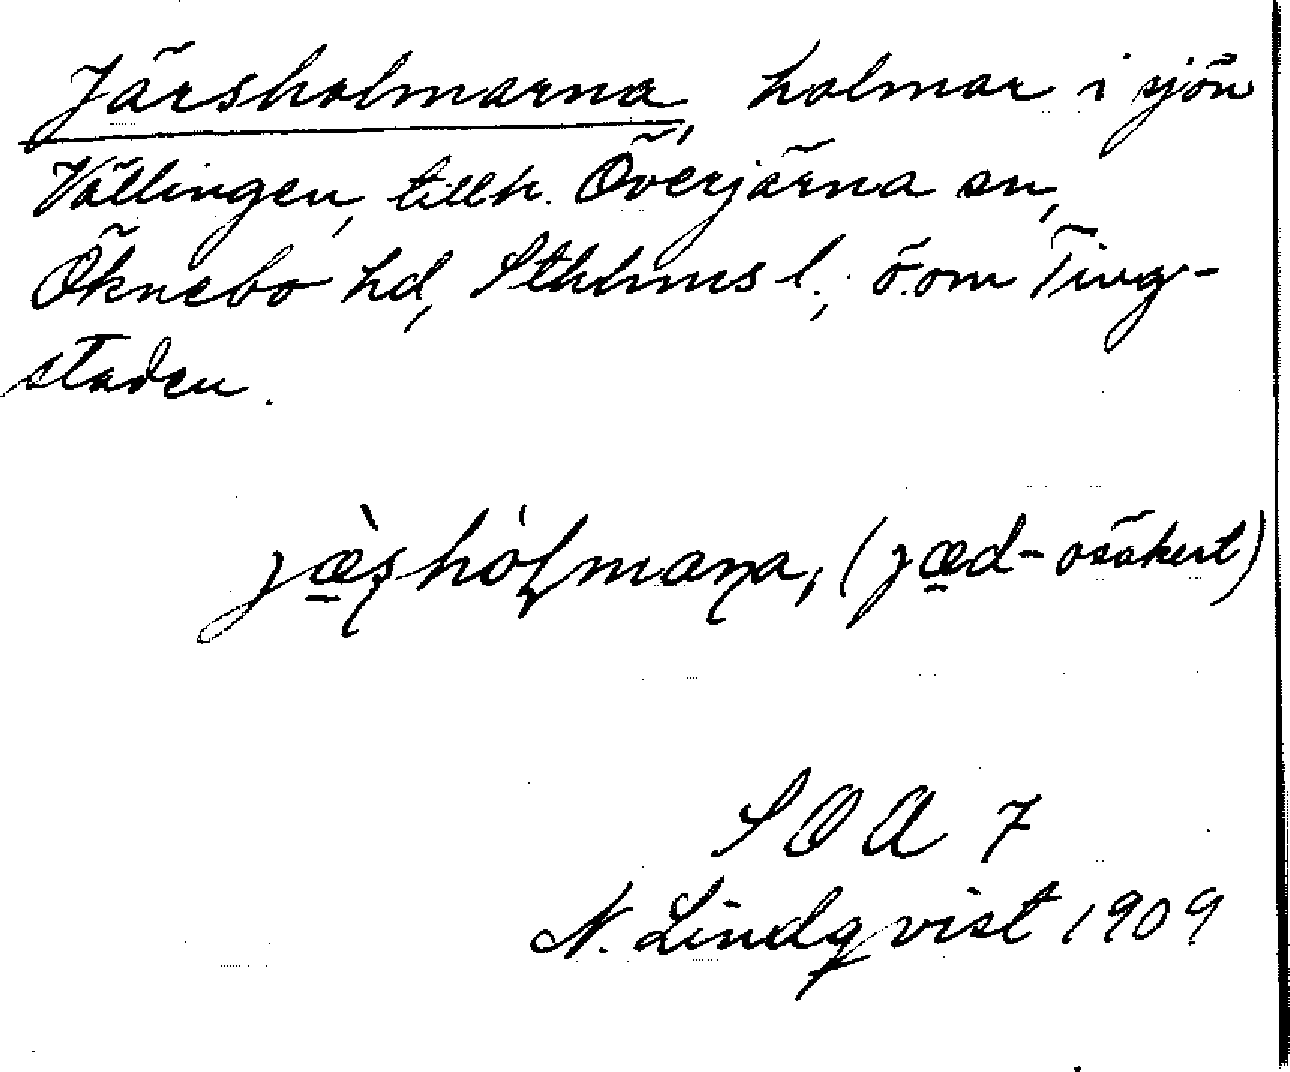 Järsholmarna, holmar i sjön
Vällingen, tillh. Överjärna sn,
Öknebo hd, Sthlms l.; ö. om Ting-
staden.
jæ̀sho̍lmaṇa, (jæd- osäkert)
SOA 7
N. Lindqvist 1909